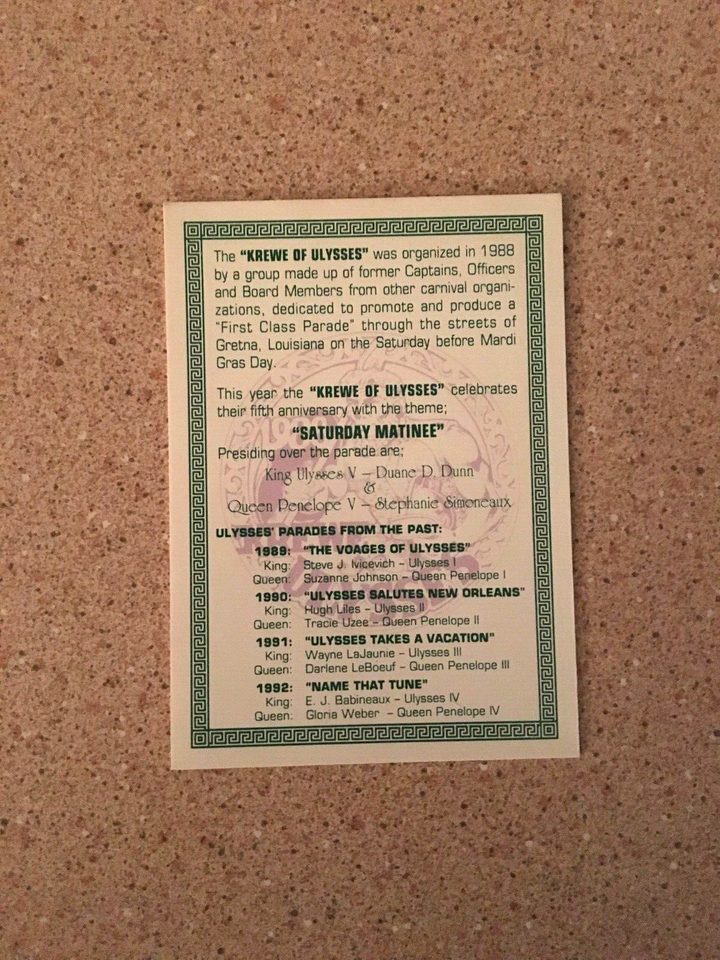 The "KREWE OF ULYSSES" was organized in 1988
by a group made up of former Captains, Officers
and Board Members from other carnival organi-
zations, dedicated to promote and produce a
"First Class Parade" through the streets of
Gretna, Louisiana on the Saturday before Mardi
Gras Day.
This year the "KREWE OF ULYSSES" celebrates
their fifth anniversary with the theme;
"SATURDAY MATINEE"
Presiding over the parade are;
King Ulysses V – Duane D. Dunn
&
Queen Penelope V – Stephanie Simoneaux
ULYSSES' PARADES FROM THE PAST:
1989: "THE VOAGES OF ULYSSES"
King: Steve J. Ivicevich - Ulysses I
Queen: Suzanne Johnson - Queen Penelope I
1990: "ULYSSES SALUTES NEW ORLEANS"
King: Hugh Liles - Ulysses II
Queen: Tracie Uzee - Queen Penelope II
1991: "ULYSSES TAKES A VACATION"
King: Wayne LaJaunie - Ulysses III
Queen: Darlene LeBoeuf - Queen Penelope III
1992: "NAME THAT TUNE"
King: E. J. Babineaux - Ulysses IV
Queen: Gloria Weber - Queen Penelope IV